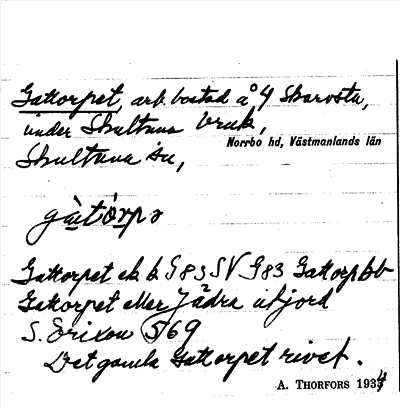 Gattorpet, arb. bostad å 4 Skarosta,
under Skultuna bruk,
Norrbo hd, Västmanlands län
Skultuna sn,
gàtòrpə
Gattorpet ek. b. G83SV G83 Gattorp bb
Gattorpet eller Jädra utjord
S. Erixon 569
Det gamla Gattorpet rivet.
A. THORFORS 1934